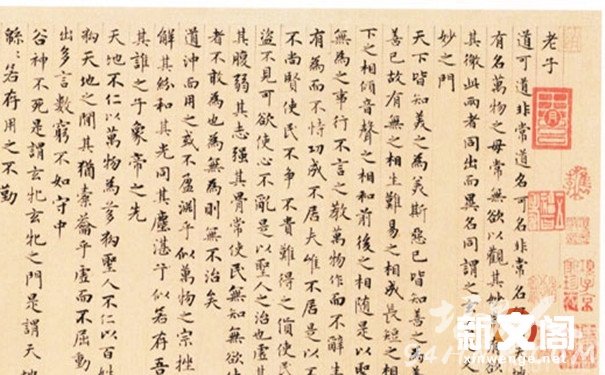 老子
道可道非常道名可名非常名
有名萬物之母常無欲以觀其妙
其徼此兩者同出而異名同謂之
妙之門
天下皆知美之為美斯惡已皆知善之
善已故有無之相生難易之相成長短之相
下之相傾音聲之相和前後之相隨是以聖
無為之事行不言之教萬物作而不辭生
有為而不恃功成不居夫唯不居是以不
不尚賢使民不爭不貴難得之貨使民
盜不見可欲使心不亂是以聖人之治也虛其
其腹弱其志强其骨常使民無知無欲使
者不敢為也為無為則無不治矣
道沖而用之或不盈淵乎似萬物之宗挫
解其紛和其光同其塵湛乎似若存吾
其誰之子象帝之先
天地不仁以萬物為芻狗聖人不仁以百姓
狗天地之間其猶橐籥乎虛而不屈動
出多言數窮不如守中
谷神不死是謂玄牝玄牝之門是謂天地
緜緜若存用之不勤
新文阁
www.xinwenge.net